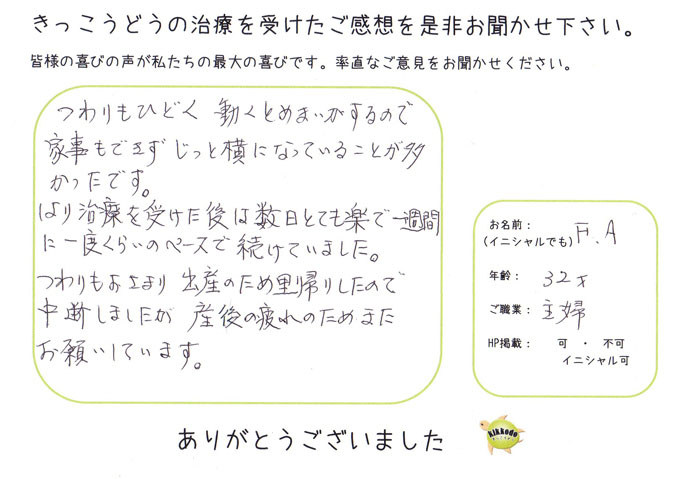 きっこうどうの治療を受けたご感想を是非お聞かせ下さい。
皆様の喜びの声が私たちの最大の喜びです。率直なご意見をお聞かせください。
つわりもひどく 動くとめまいがするので
家事もできず じっと横になっていることが多
かったです。
はり治療を受けた後は数日とても楽で一週間
に一度くらいのペースで 続けていました。
つわりもおさまり 出産のため里帰りしたので
中断しましたが 産後の疲れのためまた
お願いしています。
お名前：
(イニシャルでも) F.A
年齢： 32才
ご職業： 主婦
HP掲載： 可 ・ 不可
イニシャル可
ありがとうございました
kikkodo